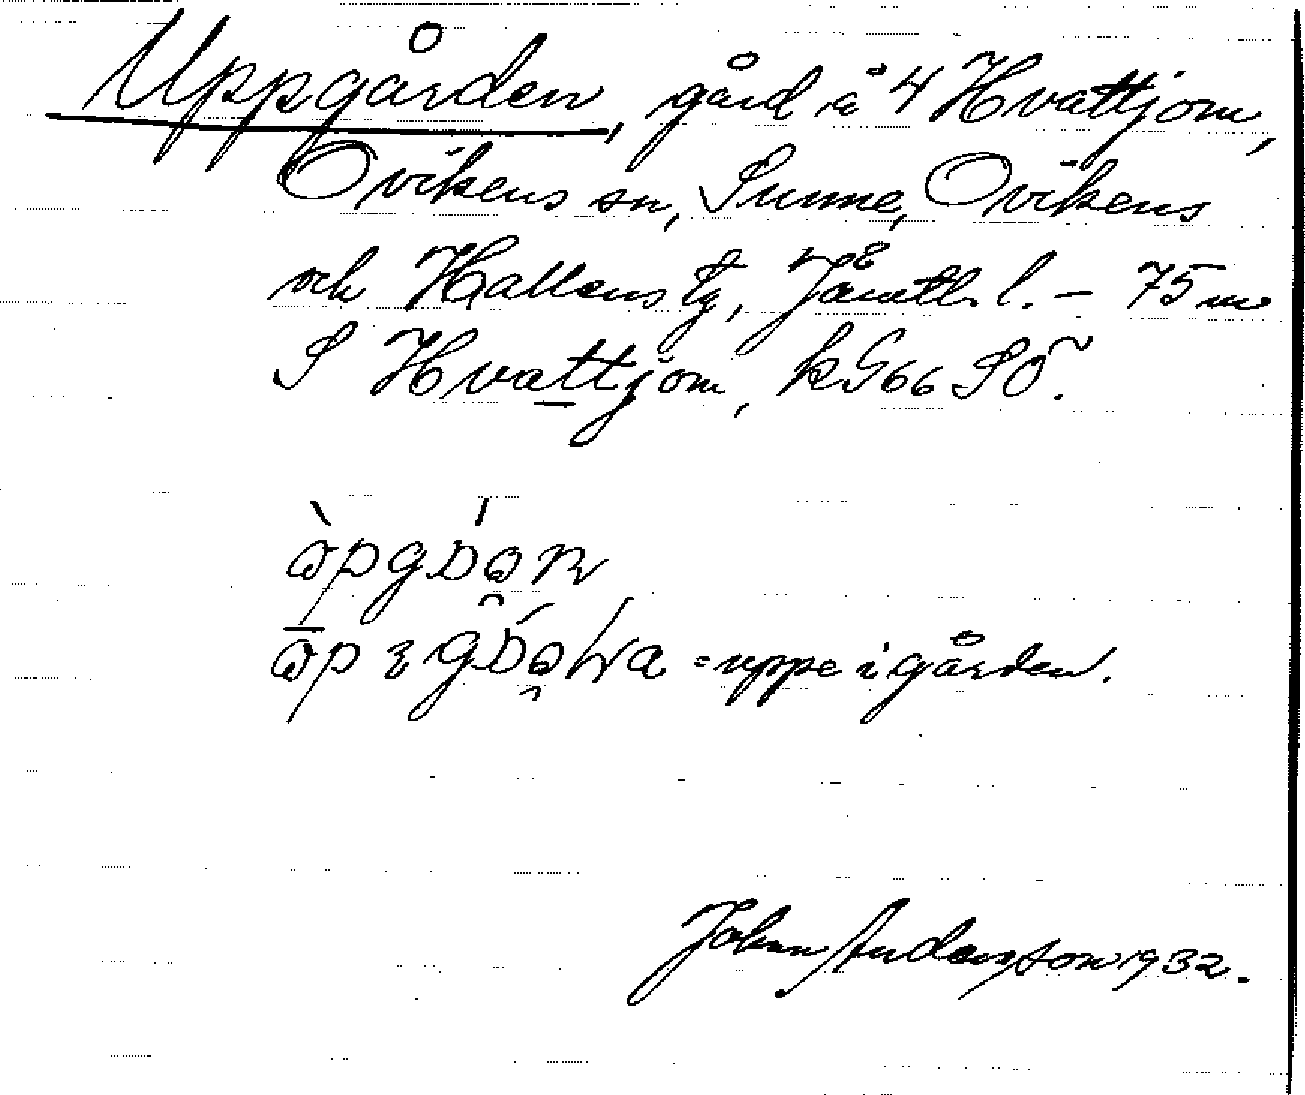 Uppgården, gård å 4 Hvattjom,
Ovikens sn, Sunne, Ovikens
och Hallens tg, Jämtl. l. – 75 m
S Hvattjom, k G66 SÖ.
= uppe i gården.
Johan Andersson 1932.